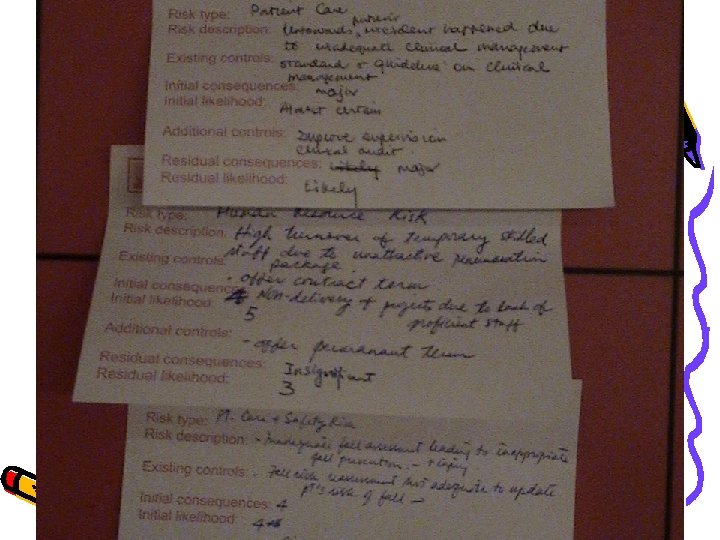 Risk type: Patient Care
patient
Risk description: Untowards incident happened due
to inadequate clinical management
Existing controls: standard & guideline on clinical
management
Initial consequences: major
Initial likelihood: Almost certain
Additional controls: Improve supervision
clinical audit
Residual consequences: likely major
Residual likelihood: Likely
Risk type: Human Resource Risk
Risk description: High turnover of temporary skilled
staff due to unattractive remuneration
package.
Existing controls: - offer contract term
Initial consequences: 4 Non-delivery of projects due to lack of
proficient staff
Initial likelihood: 5
Additional controls: - offer permanant term
Residual consequences: Insignificant
Residual likelihood: 3
Risk type: Pt. Care & Safety Risk
Risk description: - Inadequate fall assessment leading to inappropriate
fall prevention.
Existing controls: - Fall risk assessment not adequate to update
pt's risk of fall
Initial consequences: 4
Initial likelihood: 4